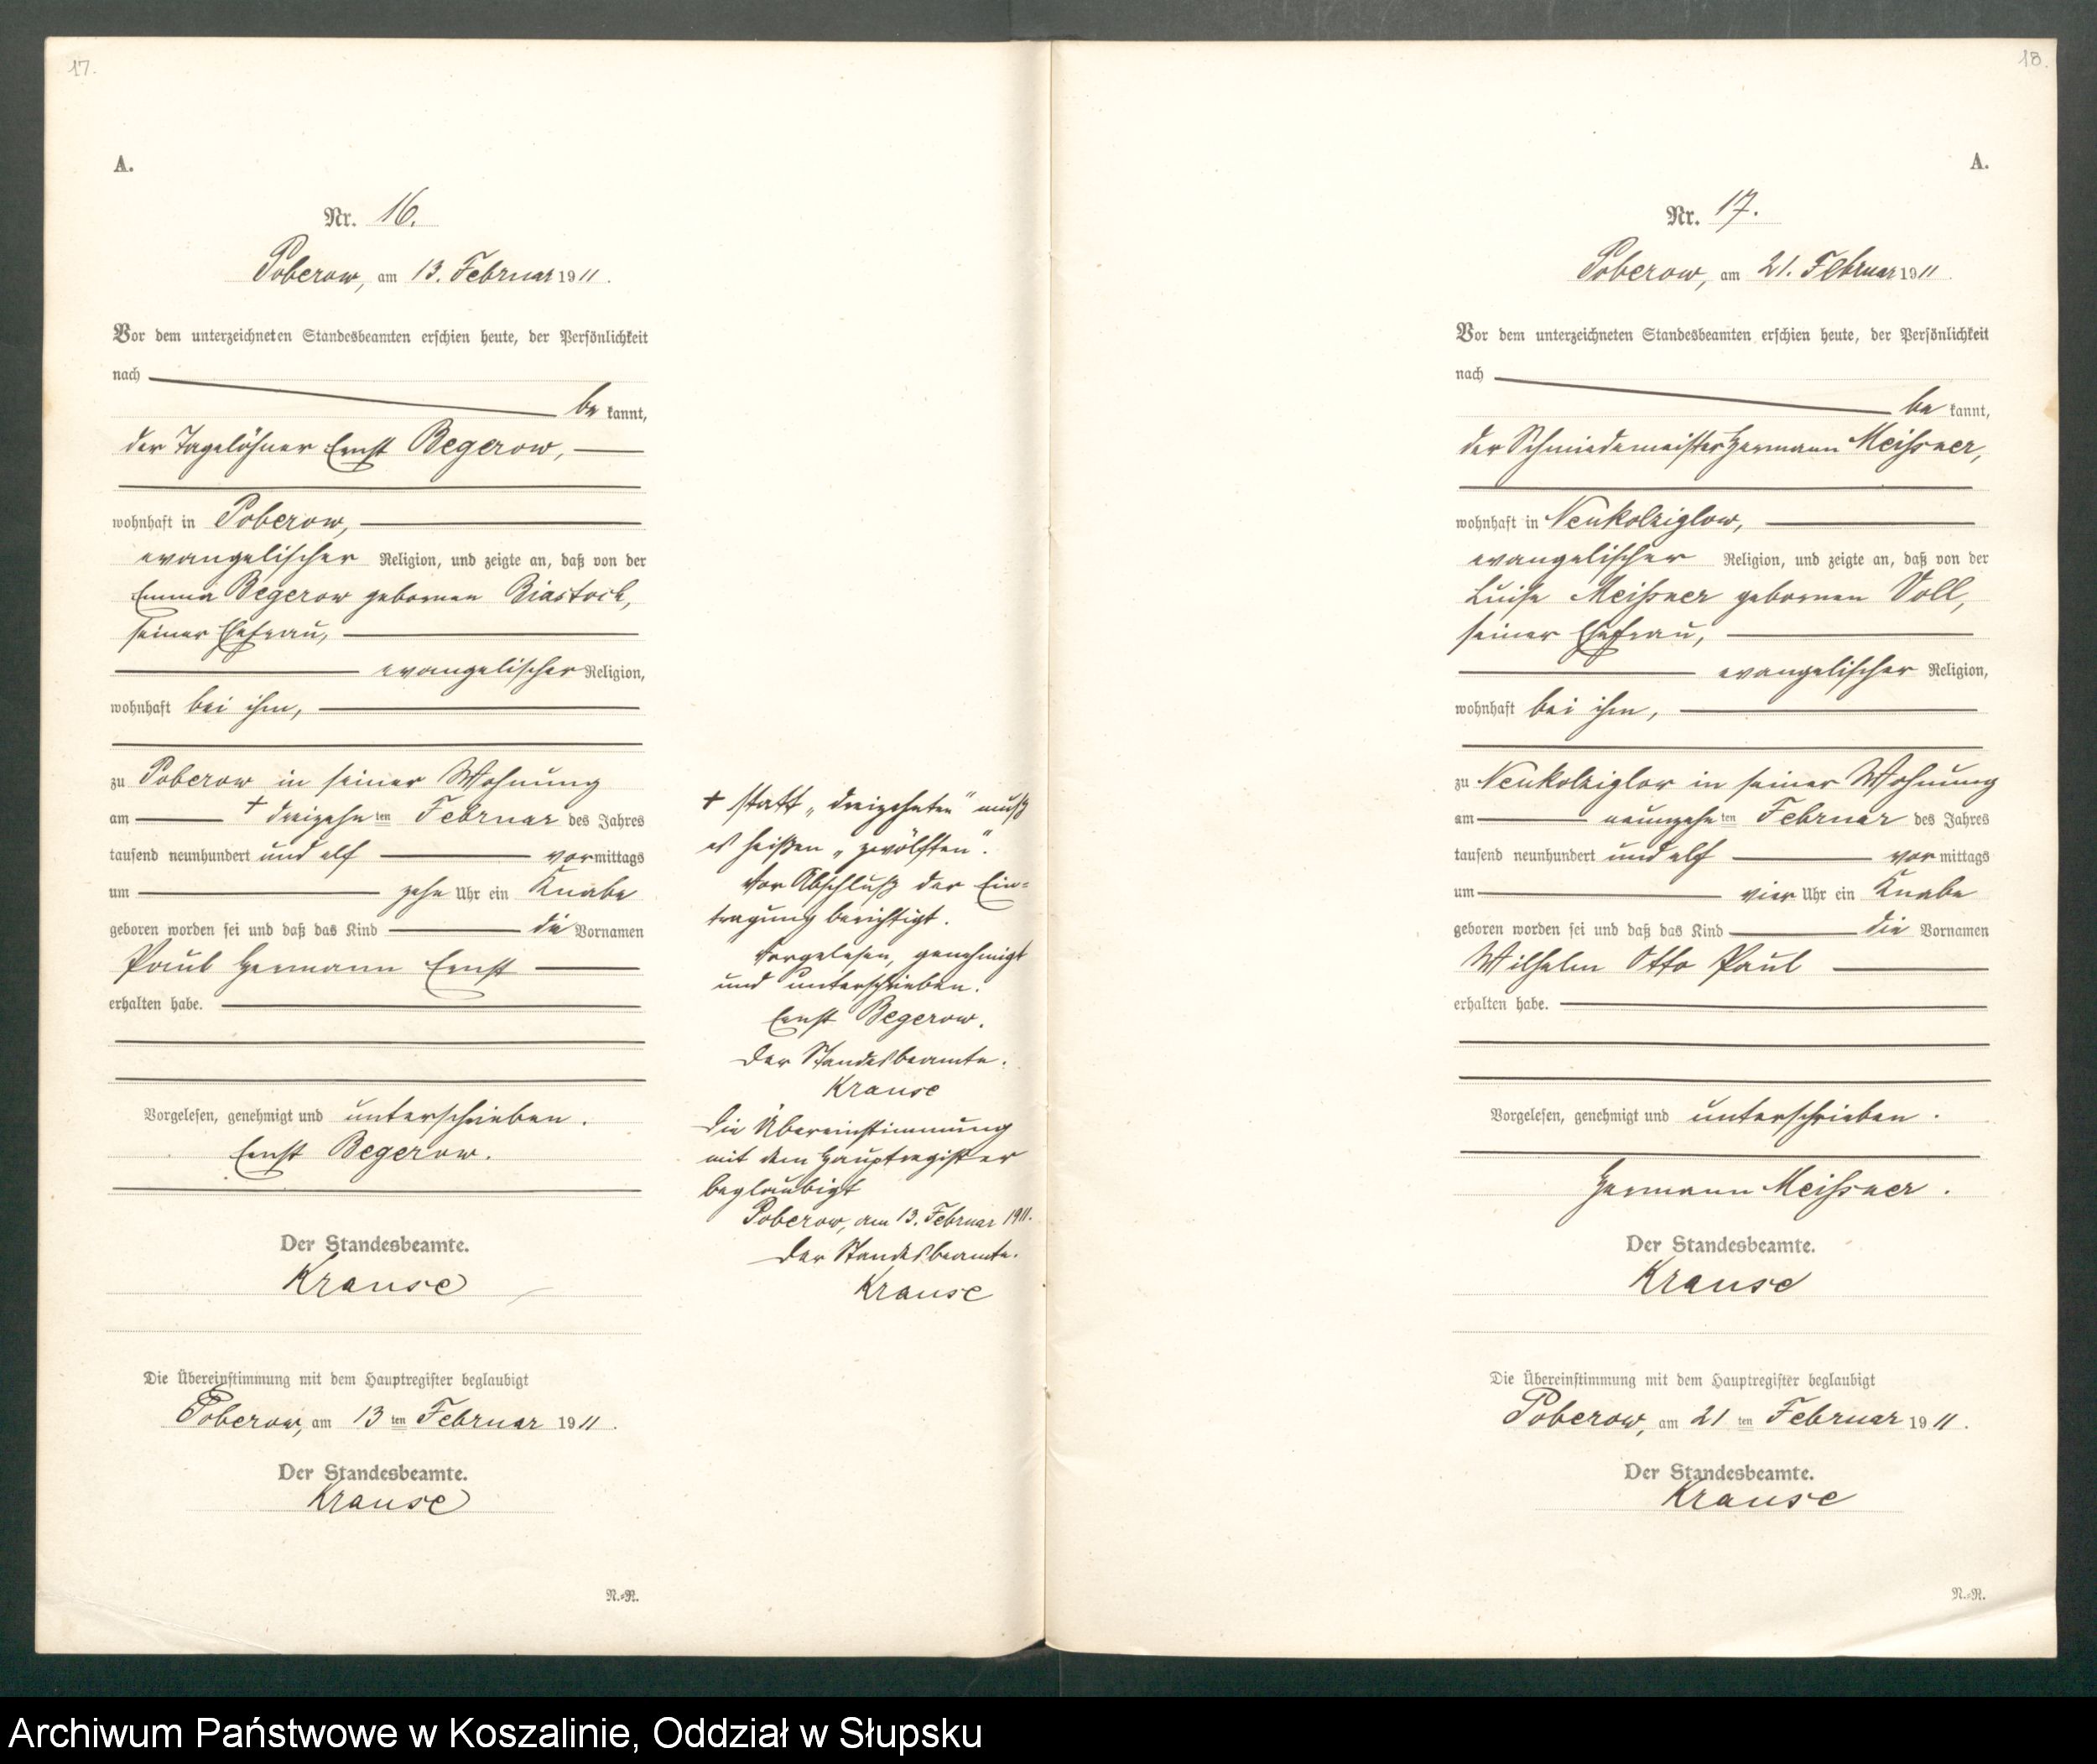 17.
A.
Nr. 16.
Poberow, am 13. Februar 1911.
Vor dem unterzeichneten Standesbeamten erschien heute, der Persönlichkeit
nach
be kannt,
der Tagelöhner Ernst Begerow,
wohnhaft in Poberow,
evangelischer Religion, und zeigte an, daß von der
Emma Begerow gebornen Biastock,
seiner Ehefrau,
evangelischer Religion,
wohnhaft bei ihm,
zu Poberow in seiner Wohnung
am + dreizehnten Februar des Jahres
tausend neunhundert und elf vormittags
um zehn Uhr ein Knabe
geboren worden sei und daß das Kind die Vornamen
Paul Hermann Ernst
erhalten habe.
Vorgelesen, genehmigt und unterschrieben.
Ernst Begerow.
Der Standesbeamte.
Krause
Die Übereinstimmung mit dem Hauptregister beglaubigt
Poberow, am 13 ten Februar 1911.
Der Standesbeamte.
Krause
N.=R.
+ statt „dreizehnten" muß
es heißen „zwölften".
Vor Abschluß der Ein=
tragung berichtigt.
Vorgelesen, genehmigt
und unterschrieben.
Ernst Begerow.
Der Standesbeamte.
Krause
Die Übereinstimmung
mit dem Hauptregister
beglaubigt
Poberow, am 13. Februar 1911.
Der Standesbeamte.
Krause
18.
A.
Nr. 17.
Poberow, am 21. Februar 1911.
Vor dem unterzeichneten Standesbeamten erschien heute, der Persönlichkeit
nach
be kannt,
der Schmiedemeister Hermann Meißner,
wohnhaft in Neukolziglow,
evangelischer Religion, und zeigte an, daß von der
Luise Meißner gebornen Voll,
seiner Ehefrau,
evangelischer Religion,
wohnhaft bei ihm,
zu Neukolziglow in seiner Wohnung
am neunzehnten Februar des Jahres
tausend neunhundert und elf vormittags
um vier Uhr ein Knabe
geboren worden sei und daß das Kind die Vornamen
Wilhelm Otto Paul
erhalten habe.
Vorgelesen, genehmigt und unterschrieben.
Hermann Meißner.
Der Standesbeamte.
Krause
Die Übereinstimmung mit dem Hauptregister beglaubigt
Poberow, am 21 ten Februar 1911.
Der Standesbeamte.
Krause
N.=R.
Archiwum Państwowe w Koszalinie, Oddział w Słupsku